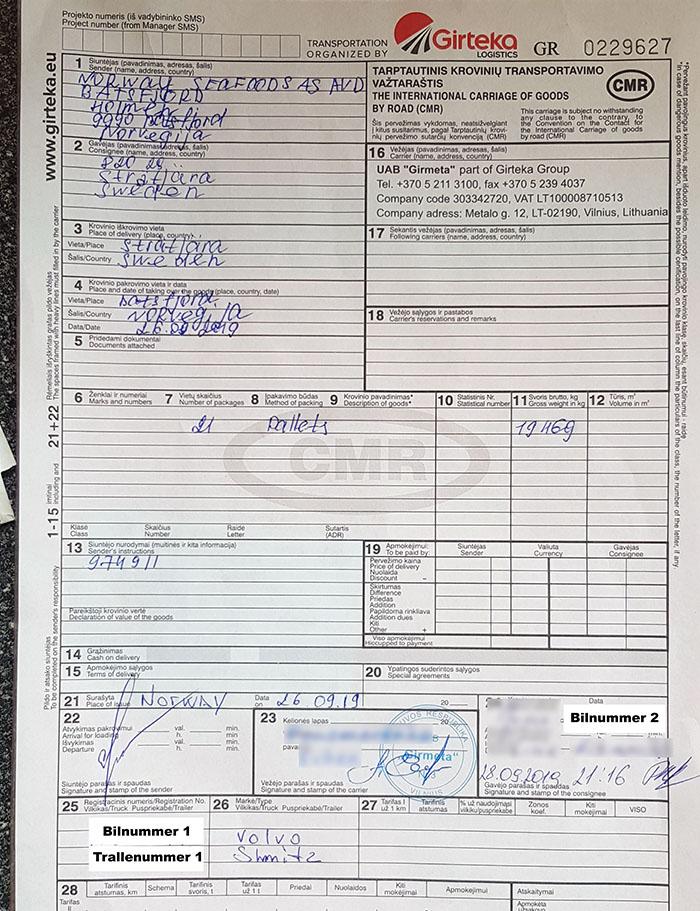 Projekto numeris (iš vadybininko SMS)
Project number (from Manager SMS)
TRANSPORTATION
ORGANIZED BY
Girteka
LOGISTICS
GR 0229627
www.girteka.eu
1 Siuntėjas (pavadinimas, adresas, šalis)
Sender (name, address, country)
NORWAY SEAFOODS AS AVD
BATSFJORD
9990
Norvegija
TARPTAUTINIS KROVINIŲ TRANSPORTAVIMO
VAŽTARAŠTIS
THE INTERNATIONAL CARRIAGE OF GOODS
BY ROAD (CMR)
CMR
Šis pervežimo vykdomas, neatsižvelgiant
į kitus susitarimus, pagal Tarptautinių krovi-
nių pervežimo sutarčių konvenciją (CMR)
This carriage is subject no withstanding
any clause to the contrary, to
the Convention on the Contact for
the International Carriage of goods
by road (CMR)
2 Gavėjas (pavadinimas, adresas, šalis)
Consignee (name, address, country)
Stratjara
Sweden
16 Vežėjas (pavadinimas, adresas, šalis)
Carrier (name, address, country)
UAB "Girmeta" part of Girteka Group
Tel. +370 5 211 3100, fax +370 5 239 4037
Company code 303342720, VAT LT100008710513
Company adress: Metalo g. 12, LT-02190, Vilnius, Lithuania
3 Krovinio iškrovimo vieta
Place of delivery (place, country)
Vieta/Place Stratjara
Šalis/Country Sweden
17 Sekantis vežėjas (pavadinimas, adresas, šalis)
Following carriers (name, address, country)
4 Krovinio pakrovimo vieta ir data
Place and date of taking over the goods (place, country, date)
Vieta/Place Batsfjord
Šalis/Country Norvegija
Data/Date 26.09 2019
18 Vežėjo sąlygos ir pastabos
Carrier's reservations and remarks
5 Pridedami dokumentai
Documents attached
6 Ženklai ir numeriai
Marks and numbers
7 Vietų skaičius
Number of packages
8 Įpakavimo būdas
Method of packing
9 Krovinio pavadinimas*
Description of goods*
10 Statistinis Nr.
Statistical number
11 Svoris brutto, kg
Gross weight in kg
12 Tūris, m³
Volume in m³
21 Pallets 19469
CMR
Klasė
Class
Skaičius
Number
Raidė
Letter
Sutartis
(ADR)
21+22
1-15
13 Siuntėjo nurodymai (muitinės ir kita informacija)
Sender's instructions
974911
Pareikštoji krovinio vertė
Declaration of value of the goods
19 Apmokėjimui:
To be paid by:
Siuntėjas
Sender
Valiuta
Currency
Gavėjas
Consignee
Pervežimo kaina
Price of delivery
Nuolaida
Discount –
Skirtumas
Difference
Priedas
Addition
Papildoma rinkliava
Addition dues
Kiti
Other +
Viso apmokėjimui
14 Grąžinimas
Cash on delivery
15 Apmokėjimo sąlygos
Terms of delivery
20 Ypatingos suderintos sąlygos
Special agreements
21 Surašyta
Place of issue NORWAY
Data
on 26.09.19 20
22
Atvykimas pakrovimui
Arrival for loading
Išvykimas
Departure
val.
h.
min.
val.
h.
min.
Siuntėjo parašas ir spaudas
Signature and stamp of the sender
23 Kelionės lapas
"Girmeta"
VILNIUS
Vežėjo parašas ir spaudas
Signature and stamp of the carrier
Data
Bilnummer 2
28.09.2019 21:16
Gavėjo parašas ir spaudas
Signature and stamp of the consignee
25 Registracinis numeris/Registration No.
Vilkikas/Truck Puspriekabė/Trailer
26 Markė/Type
Vilkikas/Truck Puspriekabė/Trailer
27 Tarifas I
už 1 km
Tarifinis
atstumas
% už naudojimąsi
vilkiku/puspriekabe
Zonos
koef.
Kiti
mokėjimai
VISO
Bilnummer 1
Trallenummer 1
Volvo
Shmitz
28 Tarifinis
atstumas, km
Schema
Tarifinis
svoris, t
Tarifas
už 1 t
Priedai
Nuolaidos
Kiti
mokėjimai
Apmokėjimui
Atskaitymai
Tarifas